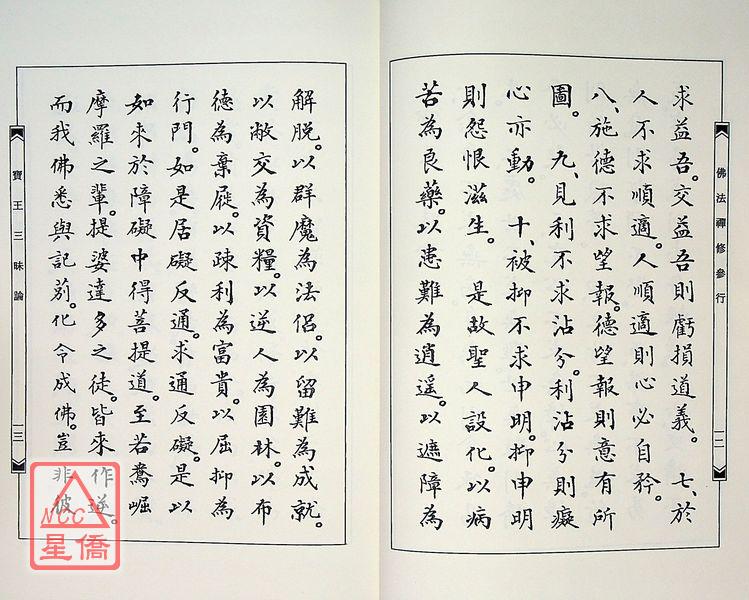 佛法禪修參行
一二
求益吾。交益吾則虧損道義。 七、於
人不求順適。人順適則心必自矜。
八、施德不求望報。德望報則意有所
圖。 九、見利不求沾分。利沾分則癡
心亦動。 十、被抑不求申明。抑申明
則怨恨滋生。 是故聖人設化。以病
苦為良藥。以患難為逍遥。以遮障為
解脫。以群魔為法侶。以留難為成就。
以敝交為資糧。以逆人為園林。以布
德為棄屣。以疎利為富貴。以屈抑為
行門。如是居礙反通。求通反礙。是以
如來於障礙中得菩提道。至若鴦崛
摩羅之輩。提婆達多之徒。皆來作逆。
而我佛悉與記莂。化令成佛。豈非彼
寶王三昧論
一三
NCC
星僑